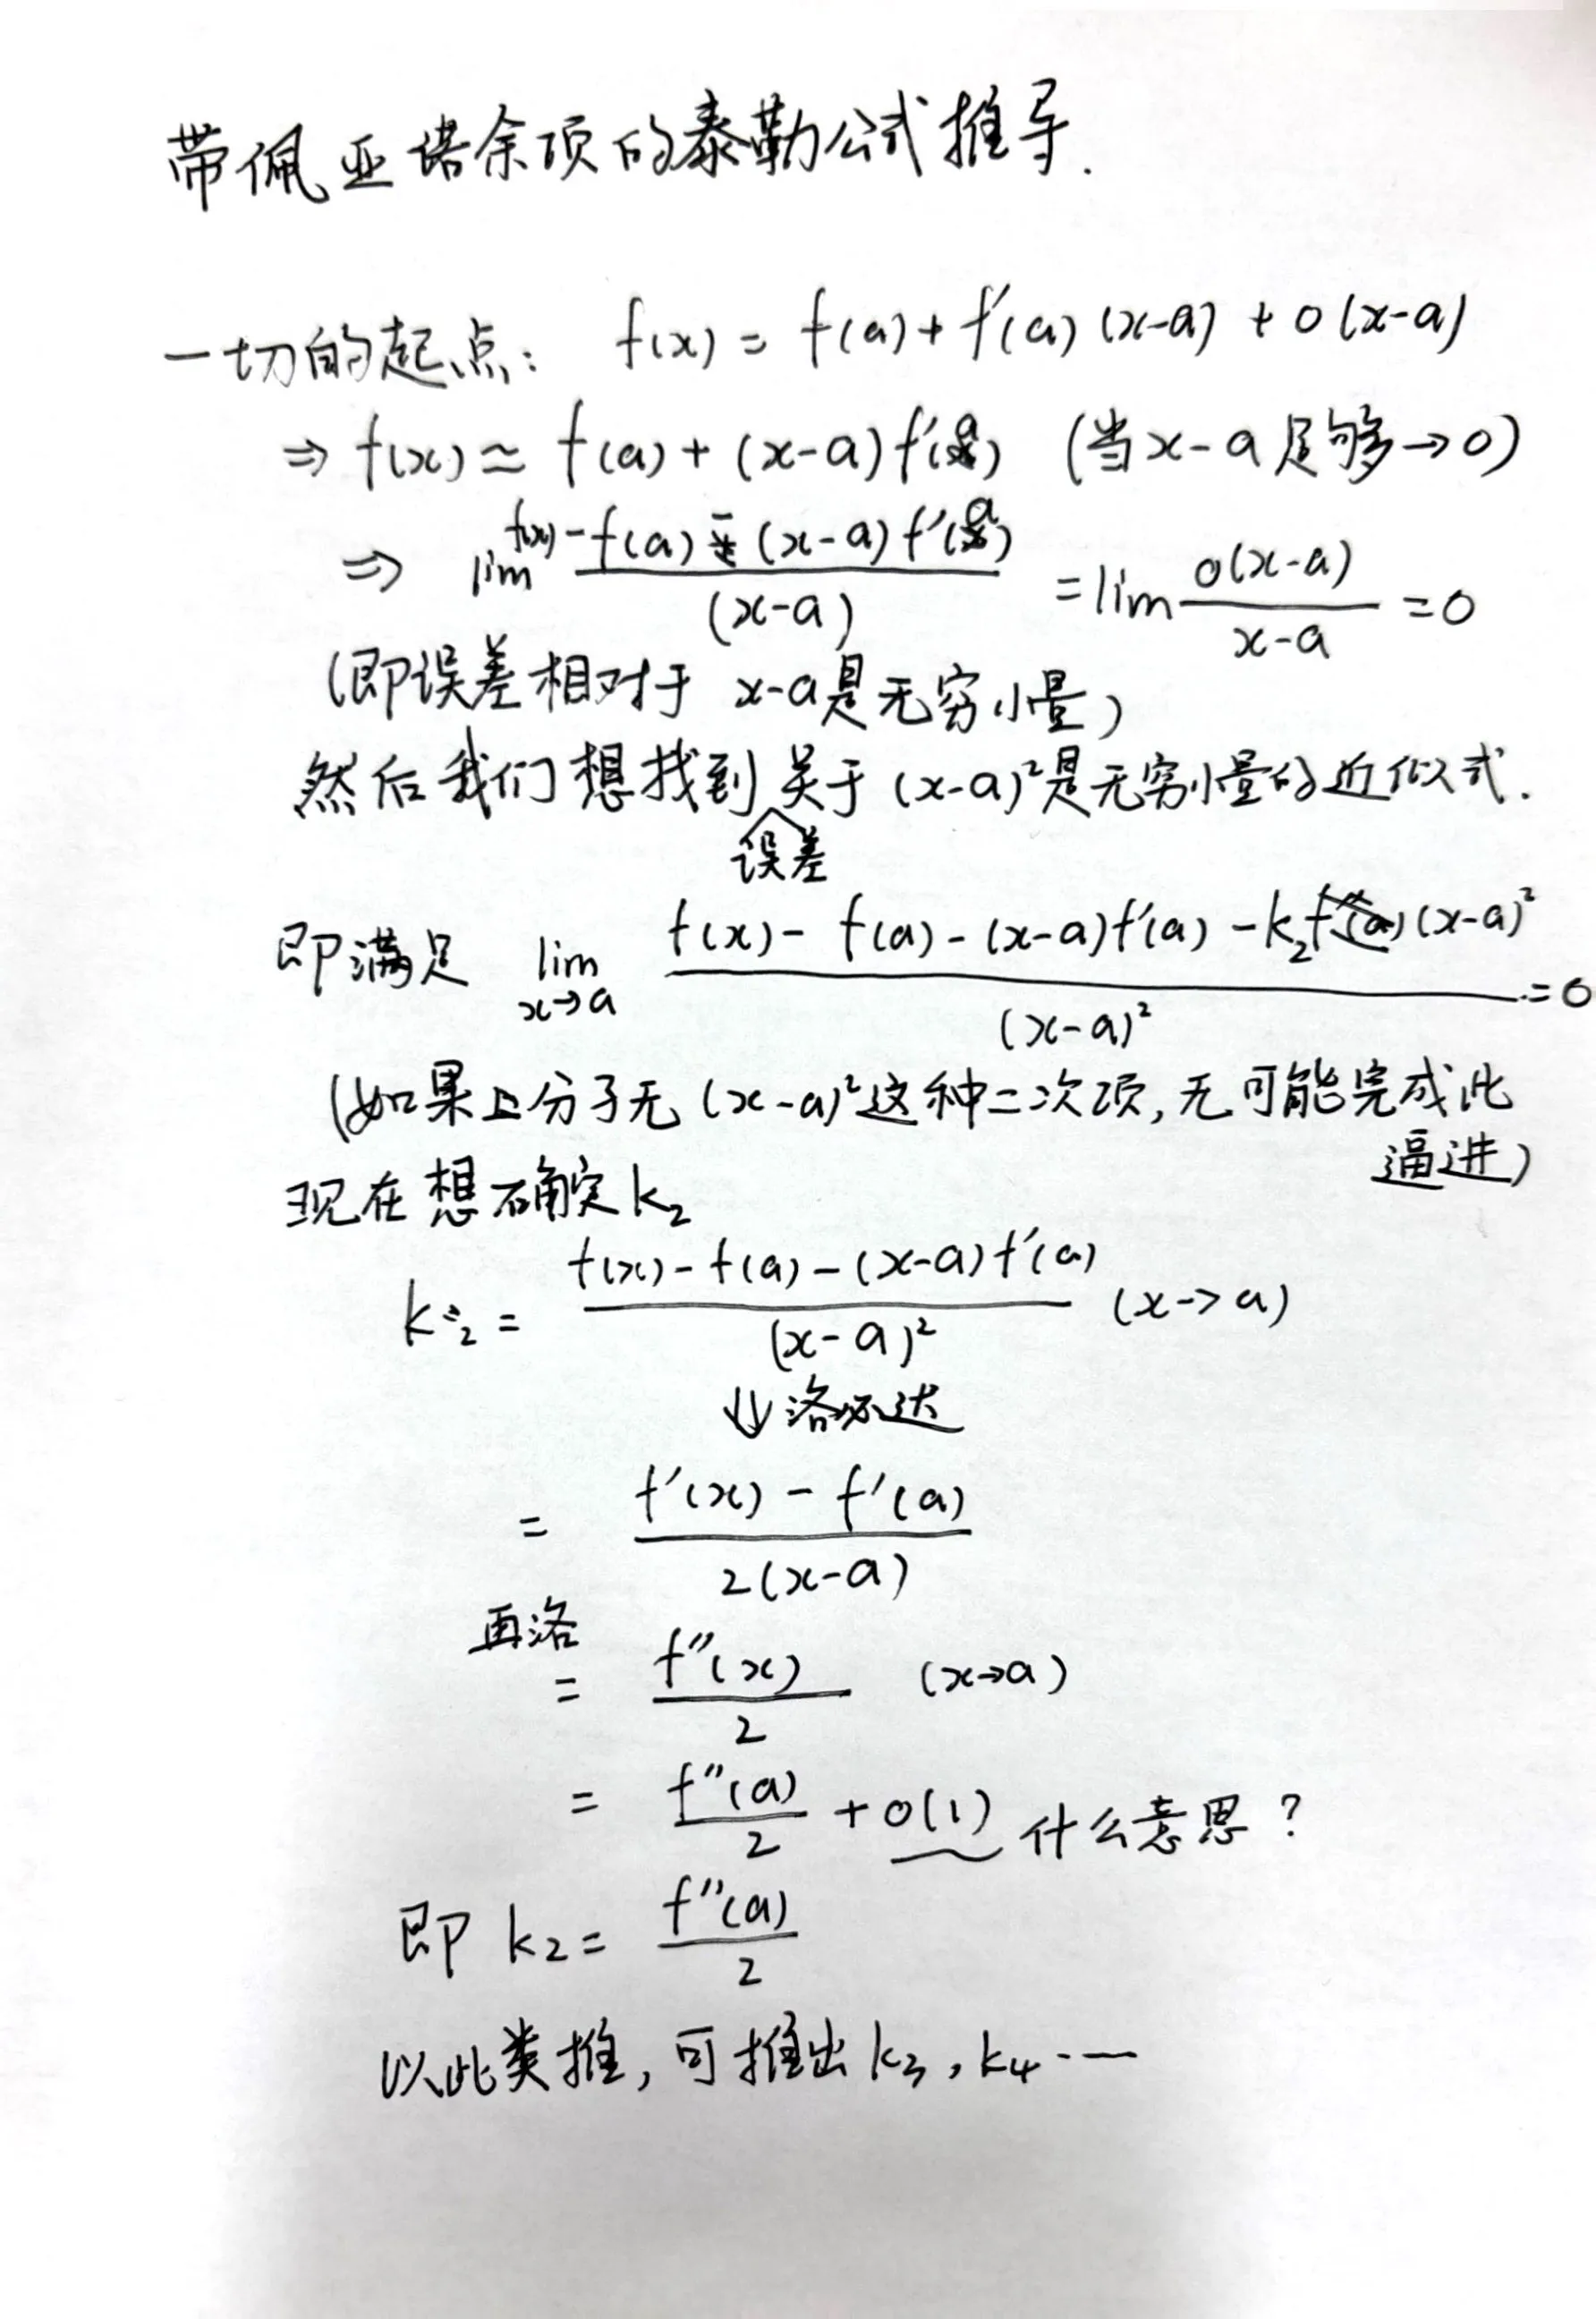 带佩亚诺余项的泰勒公式推导.
一切的起点: f(x) = f(a) + f'(a) (x-a) + o(x-a)
⇒ f(x) ≈ f(a) + (x-a) f'(a) (当x-a足够→0)
⇒ lim (f(x) - f(a) - (x-a) f'(a)) / (x-a) = lim o(x-a) / (x-a) = 0
(即误差相对于 x-a是无穷小量)
然后我们想找到误差关于 (x-a)²是无穷小量的近似式.
即满足 lim x→a (f(x) - f(a) - (x-a)f'(a) - k₂(x-a)²) / (x-a)² = 0
(如果上分子无 (x-a)²这种二次项, 无可能完成此
逼进)
现在想确定k₂
k₂ = (f(x) - f(a) - (x-a)f'(a)) / (x-a)² (x→a)
⇓ 洛必达
= (f'(x) - f'(a)) / 2(x-a)
再洛
= f''(x) / 2 (x→a)
= f''(a) / 2 + o(1) 什么意思?
即 k₂ = f''(a) / 2
以此类推, 可推出 k₃, k₄ ……